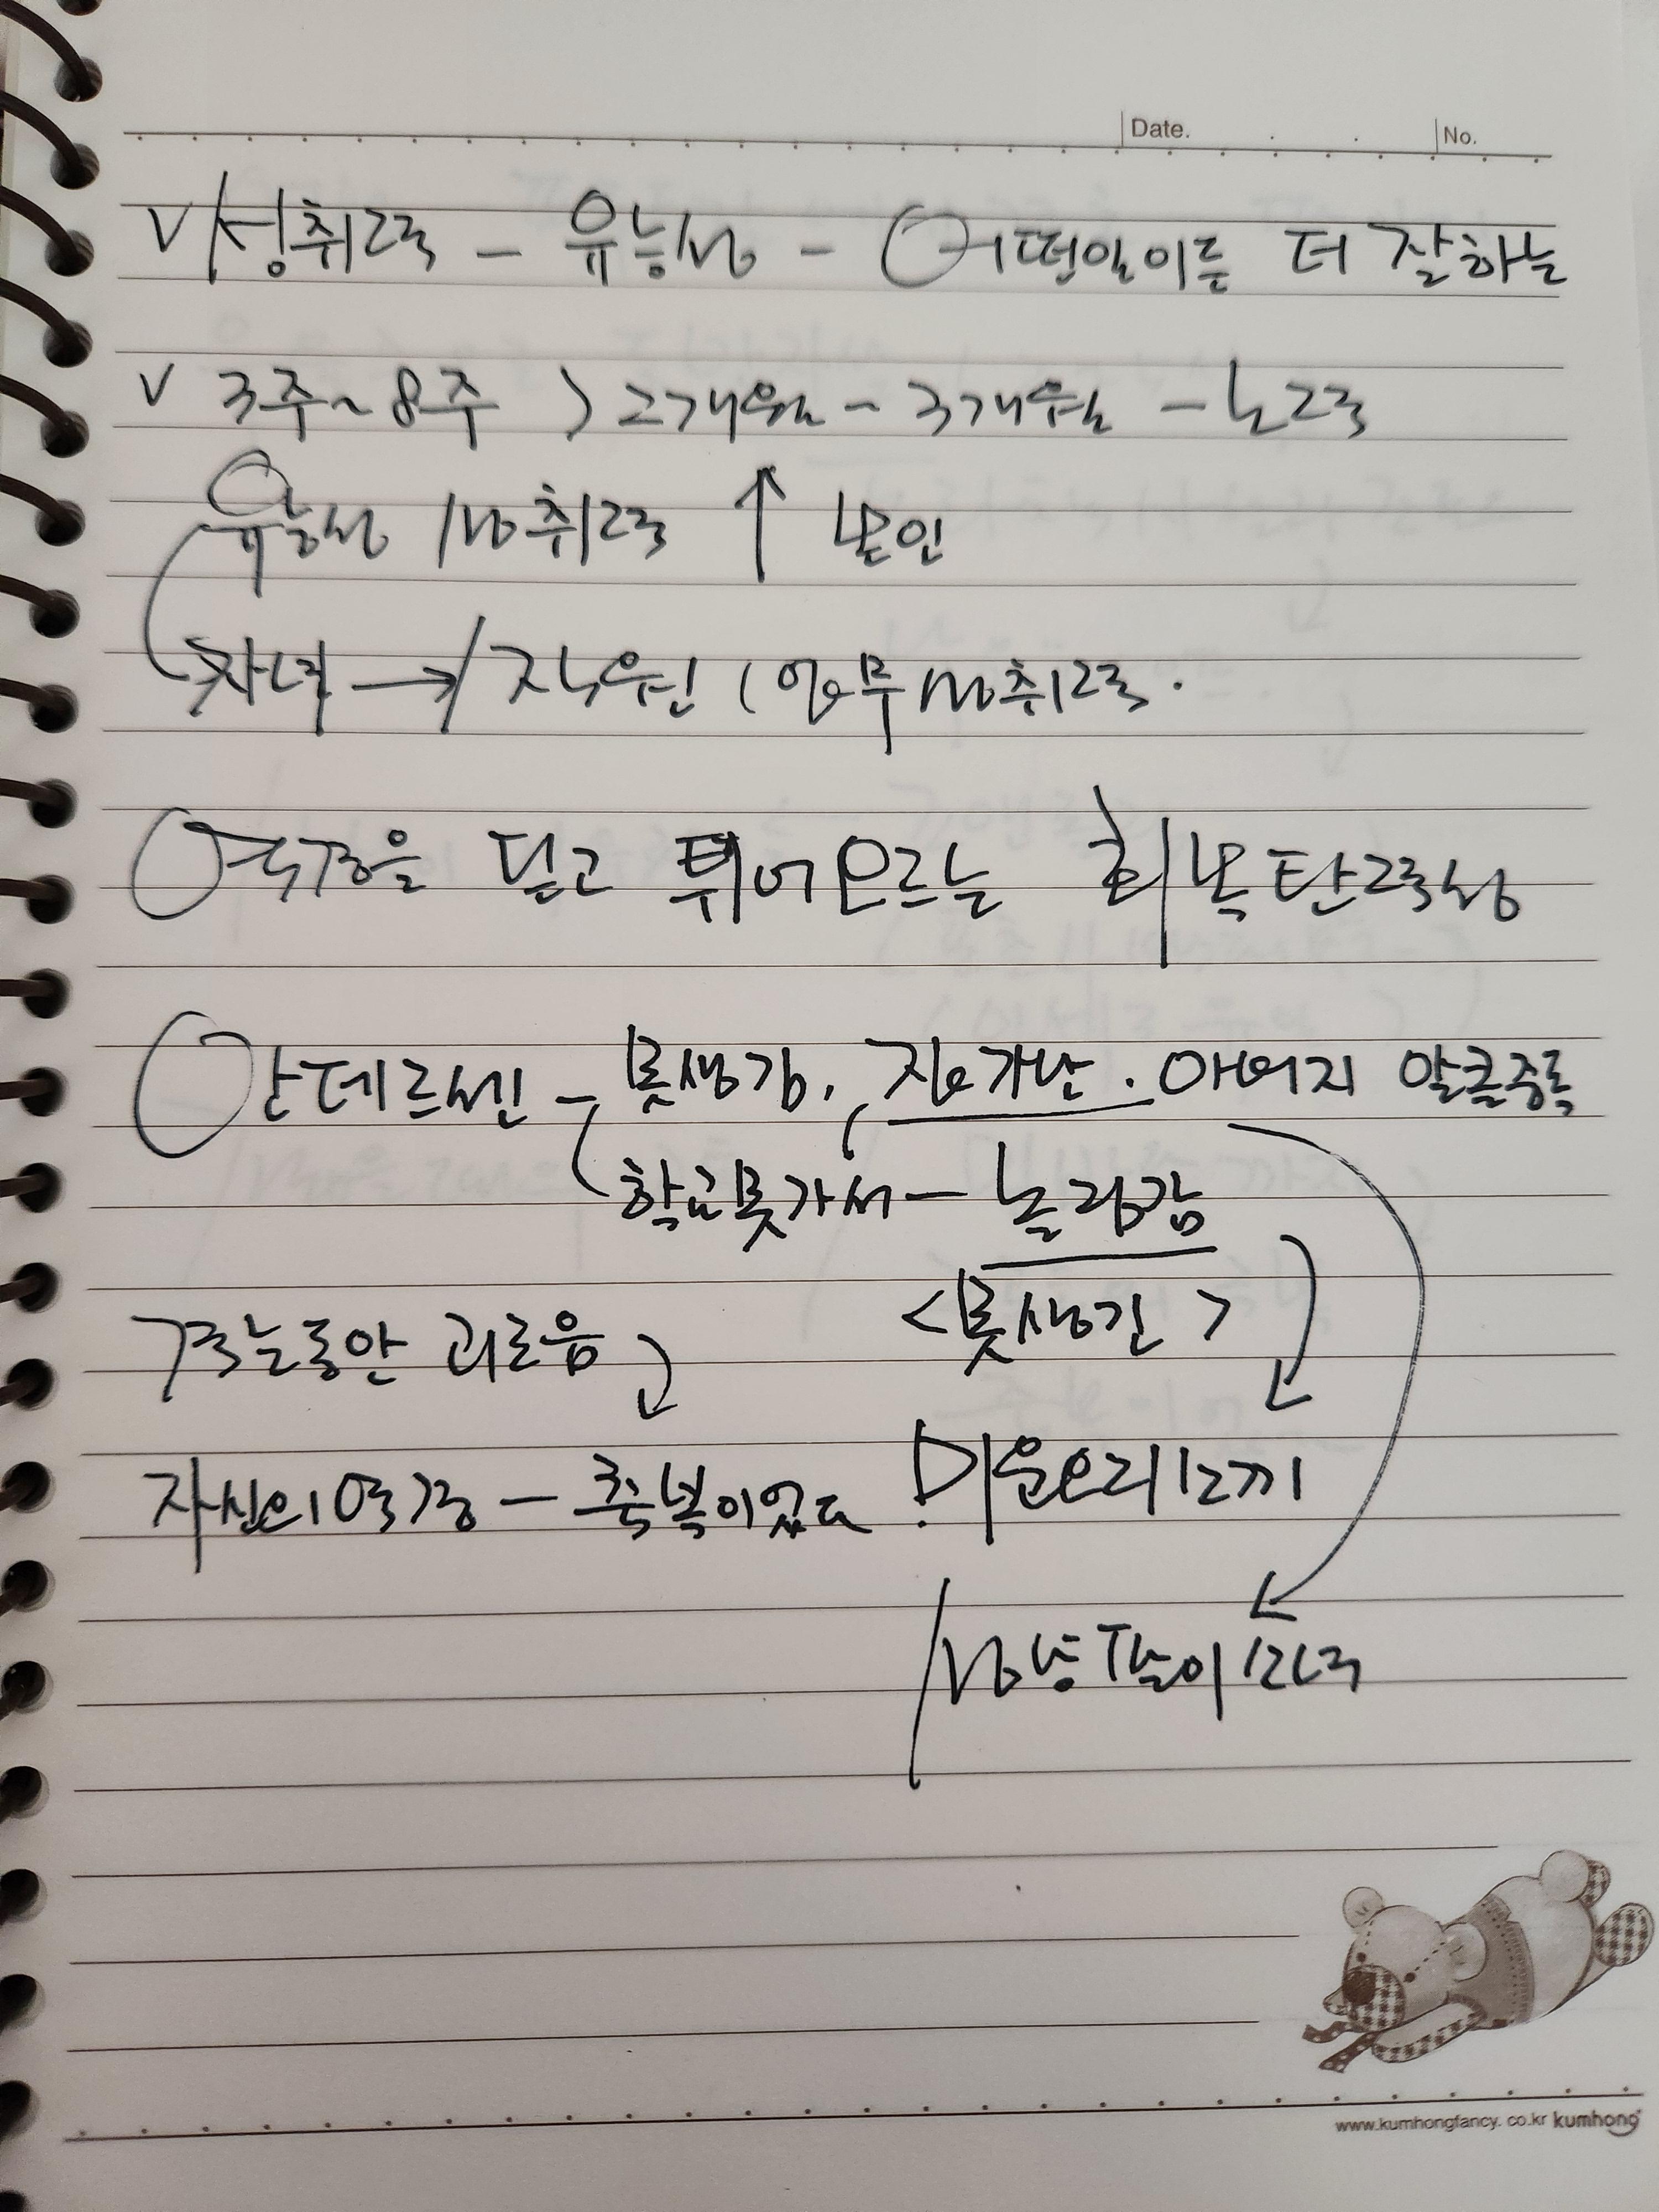 Date. No.
∨ 성취력 - 유능성 - 어떤일이든 더 잘하는
∨ 3주~8주 > 2개월 ~ 3개월 - 노력
유능성 성취력 ↑ 본인
자녀 → 직원 (업무성취력.
역경을 딛고 튀어오르는 회복탄력성
안데르센 - 못생김, 집가난. 아버지 알콜중독
학교못가서 - 놀림감
<못생긴>
겪는동안 괴로움
자신의 역경 - 축복이었다. 미운오리새끼
성냥팔이소녀
www.kumhongfancy.co.kr kumhong